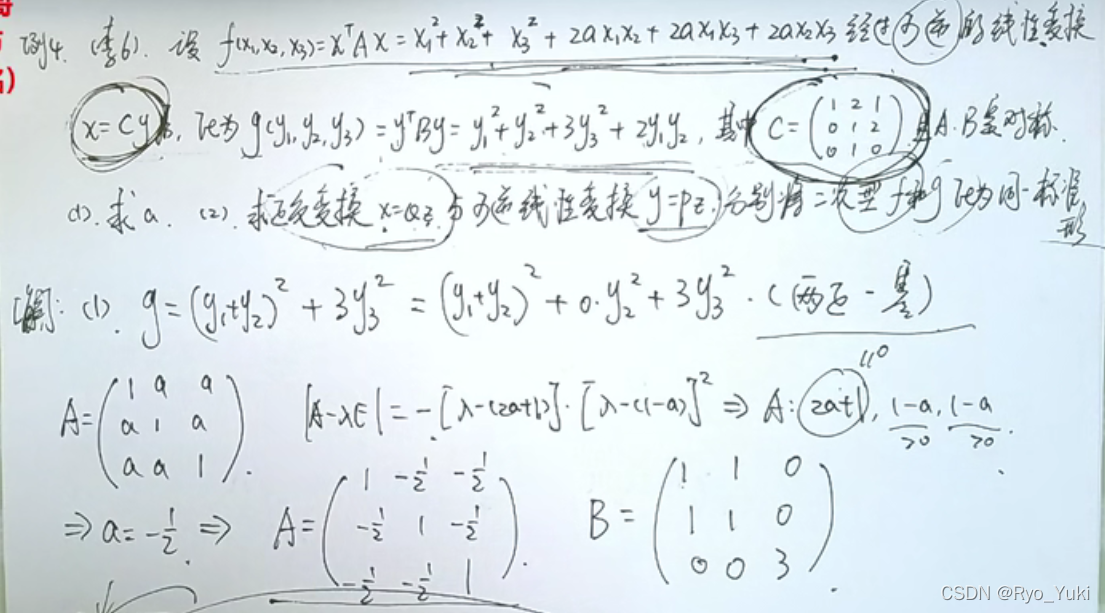 例4.(李6).设 f(x₁,x₂,x₃)=xᵀAx=x₁²+x₂²+x₃²+2ax₁x₂+2ax₁x₃+2ax₂x₃ 经过可逆的线性变换
x=Cy,化为g(y₁,y₂,y₃)=yᵀBy=y₁²+y₂²+3y₃²+2y₁y₂,其中 C=(1 2 1; 0 1 2; 0 1 0) 且A.B实对称.
(1).求a. (2).求正交变换x=Qz与可逆线性变换y=Pz.分别将二次型f和g化为同一标准形
[解]:(1). g=(y₁+y₂)²+3y₃²=(y₁+y₂)²+0·y₂²+3y₃².(两正一零)
A=(1 a a; a 1 a; a a 1). |A-λE|=-[λ-(2a+1)]·[λ-(1-a)]² ⇒ A: 2a+1, 1-a, 1-a.
=0 >0 >0
⇒ a=-1/2 ⇒ A=(1 -1/2 -1/2; -1/2 1 -1/2; -1/2 -1/2 1). B=(1 1 0; 1 1 0; 0 0 3).
CSDN @Ryo_Yuki